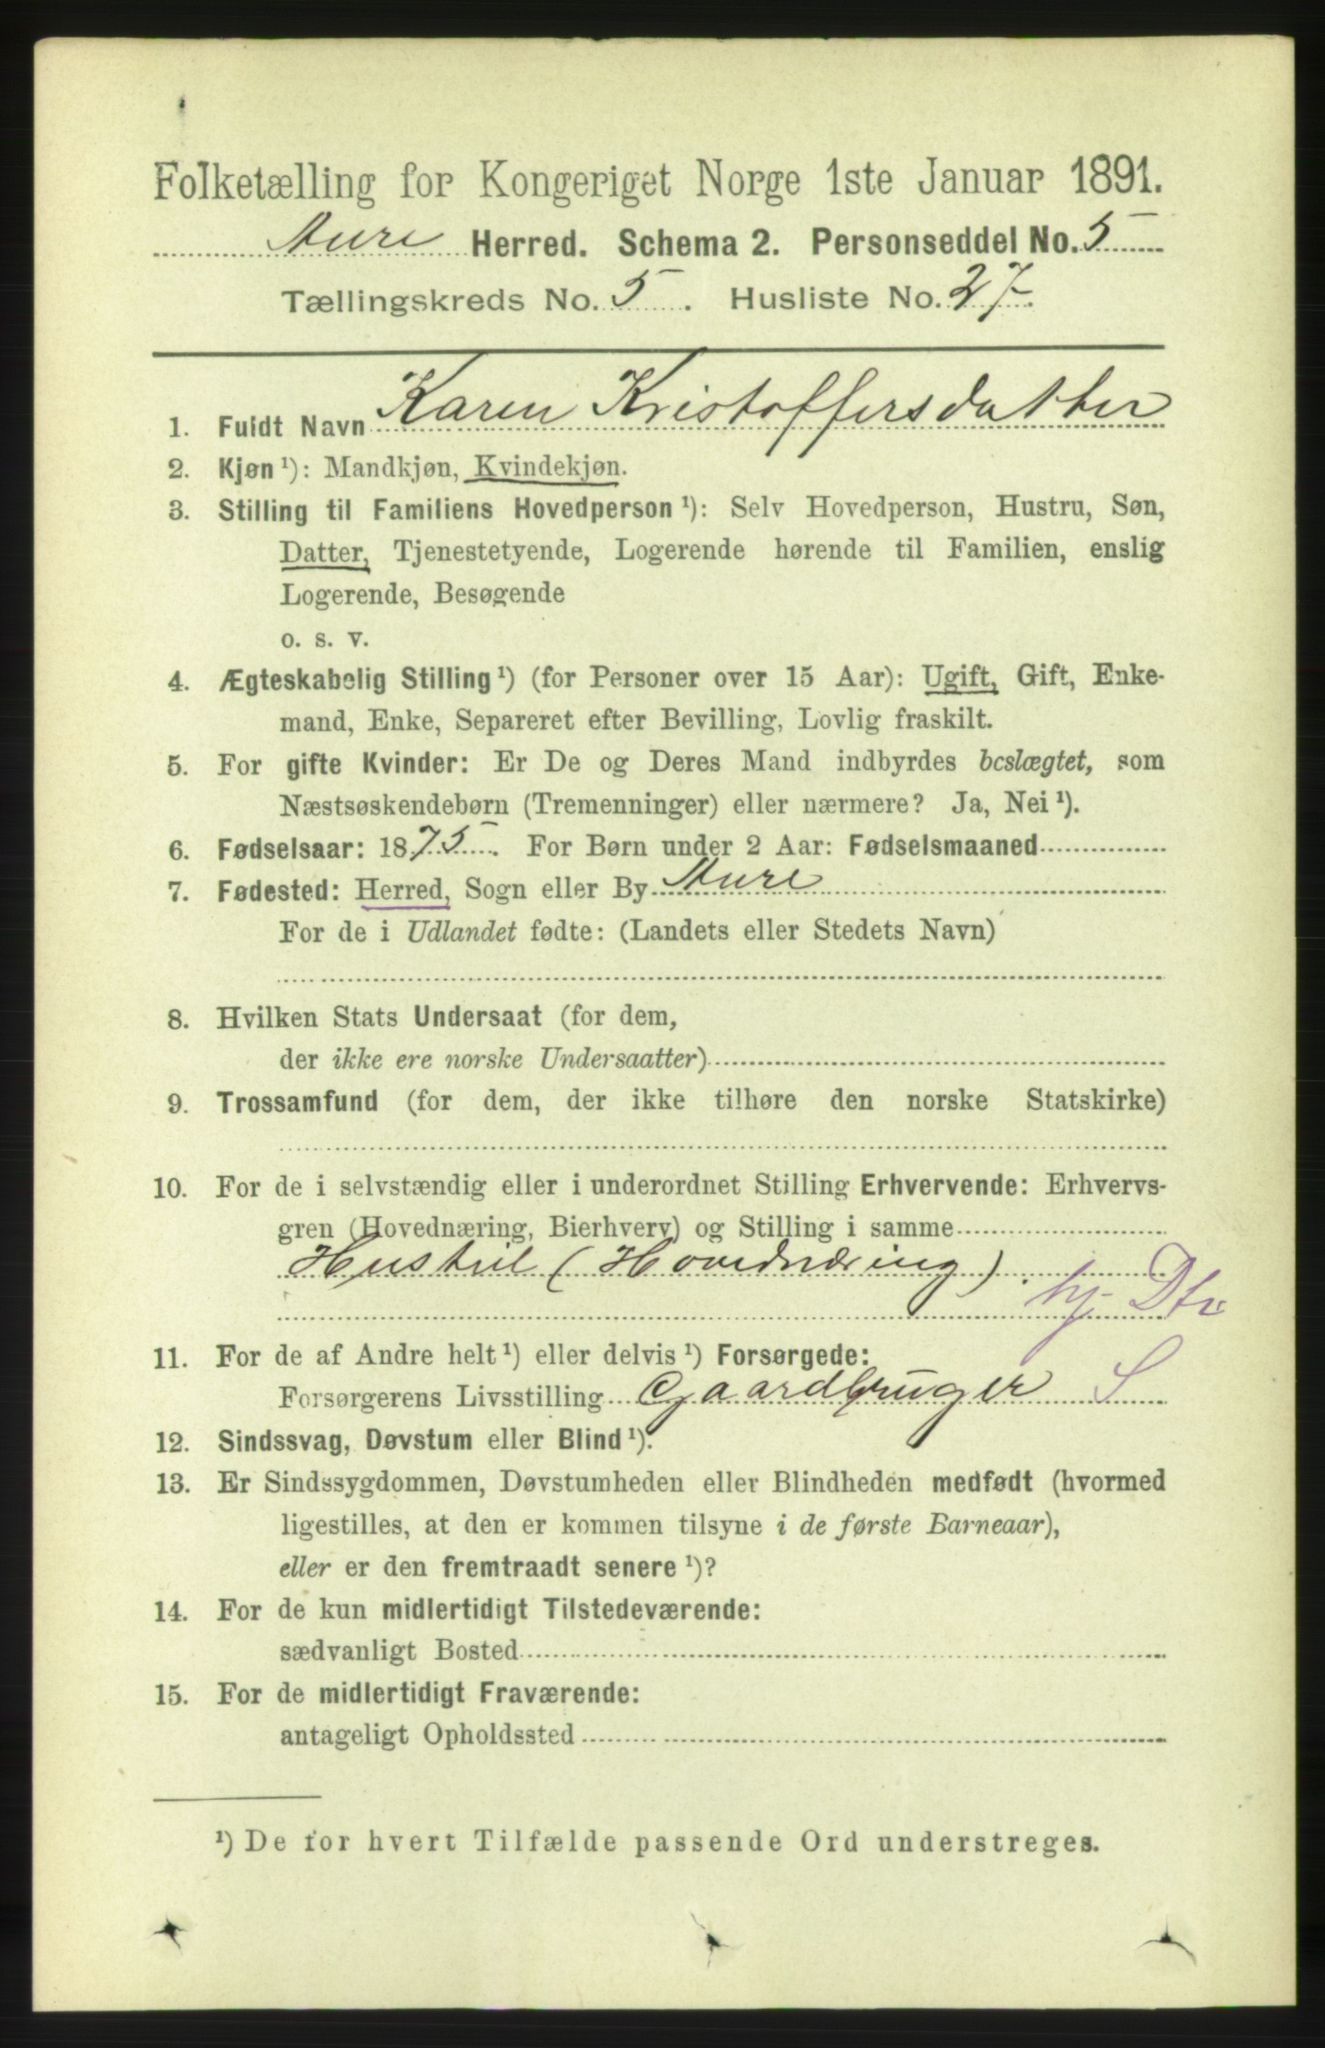 Folketælling for Kongeriget Norge 1ste Januar 1891.
Aure Herred. Schema 2. Personseddel No. 5
Tællingskreds No. 5. Husliste No. 27.
1. Fuldt Navn Karen Kristoffersdatter
2. Kjøn ¹): Mandkjøn, Kvindekjøn.
3. Stilling til Familiens Hovedperson ¹): Selv Hovedperson, Hustru, Søn,
Datter, Tjenestetyende, Logerende hørende til Familien, enslig
Logerende, Besøgende
o. s. v.
4. Ægteskabelig Stilling ¹) (for Personer over 15 Aar): Ugift, Gift, Enke-
mand, Enke, Separeret efter Bevilling, Lovlig fraskilt.
5. For gifte Kvinder: Er De og Deres Mand indbyrdes beslægtet, som
Næstsøskendebørn (Tremenninger) eller nærmere? Ja, Nei ¹).
6. Fødselsaar: 1875. For Børn under 2 Aar: Fødselsmaaned
7. Fødested: Herred, Sogn eller By Aure
For de i Udlandet fødte: (Landets eller Stedets Navn)
8. Hvilken Stats Undersaat (for dem,
der ikke ere norske Undersaatter)
9. Trossamfund (for dem, der ikke tilhøre den norske Statskirke)
10. For de i selvstændig eller i underordnet Stilling Erhvervende: Erhvervs-
gren (Hovednæring, Bierhverv) og Stilling i samme
Hustril (Hovednæring).
hj Dtr
11. For de af Andre helt ¹) eller delvis ¹) Forsørgede:
Forsørgerens Livsstilling Gaardbruger S
12. Sindssvag, Døvstum eller Blind ¹).
13. Er Sindssygdommen, Døvstumheden eller Blindheden medfødt (hvormed
ligestilles, at den er kommen tilsyne i de første Barneaar),
eller er den fremtraadt senere ¹)?
14. For de kun midlertidigt Tilstedeværende:
sædvanligt Bosted
15. For de midlertidigt Fraværende:
antageligt Opholdssted
¹) De for hvert Tilfælde passende Ord understreges.